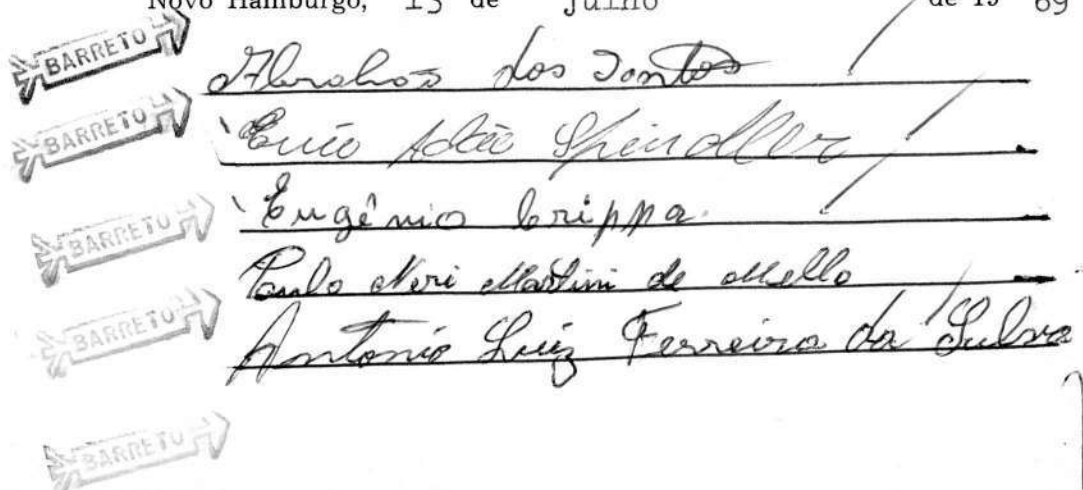 Novo Hamburgo, 15 de julho de 19 69
BARRETO
Abrahão dos Santos
BARRETO
Adão Spindler
BARRETO
Eugênio Crippa.
BARRETO
Paulo Neri Martini de Mello
BARRETO
Antonio Luiz Ferreira da Silva
BARRETO